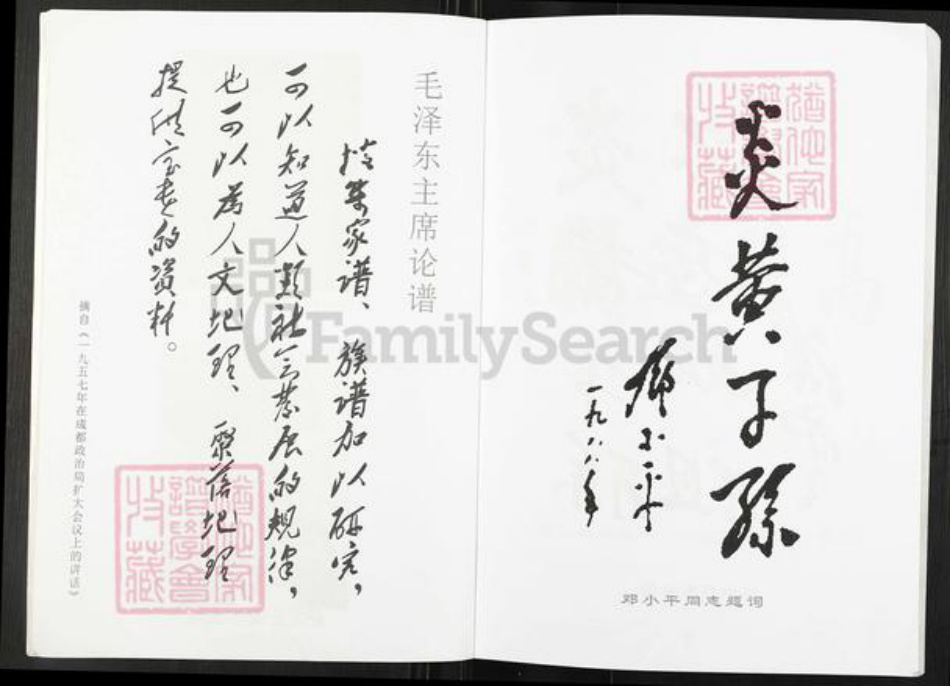 炎黄子孙
邓小平
一九八八年
邓小平同志题词
毛泽东主席论谱
搜集家谱、族谱加以研究，
可以知道人类社会发展的规律，
也可以为人文地理、聚落地理
提供宝贵的资料。
摘自《一九五七年在成都政治局扩大会议上的讲话》
猶他家
譜學會
收藏
猶他家
譜學會
收藏
FamilySearch